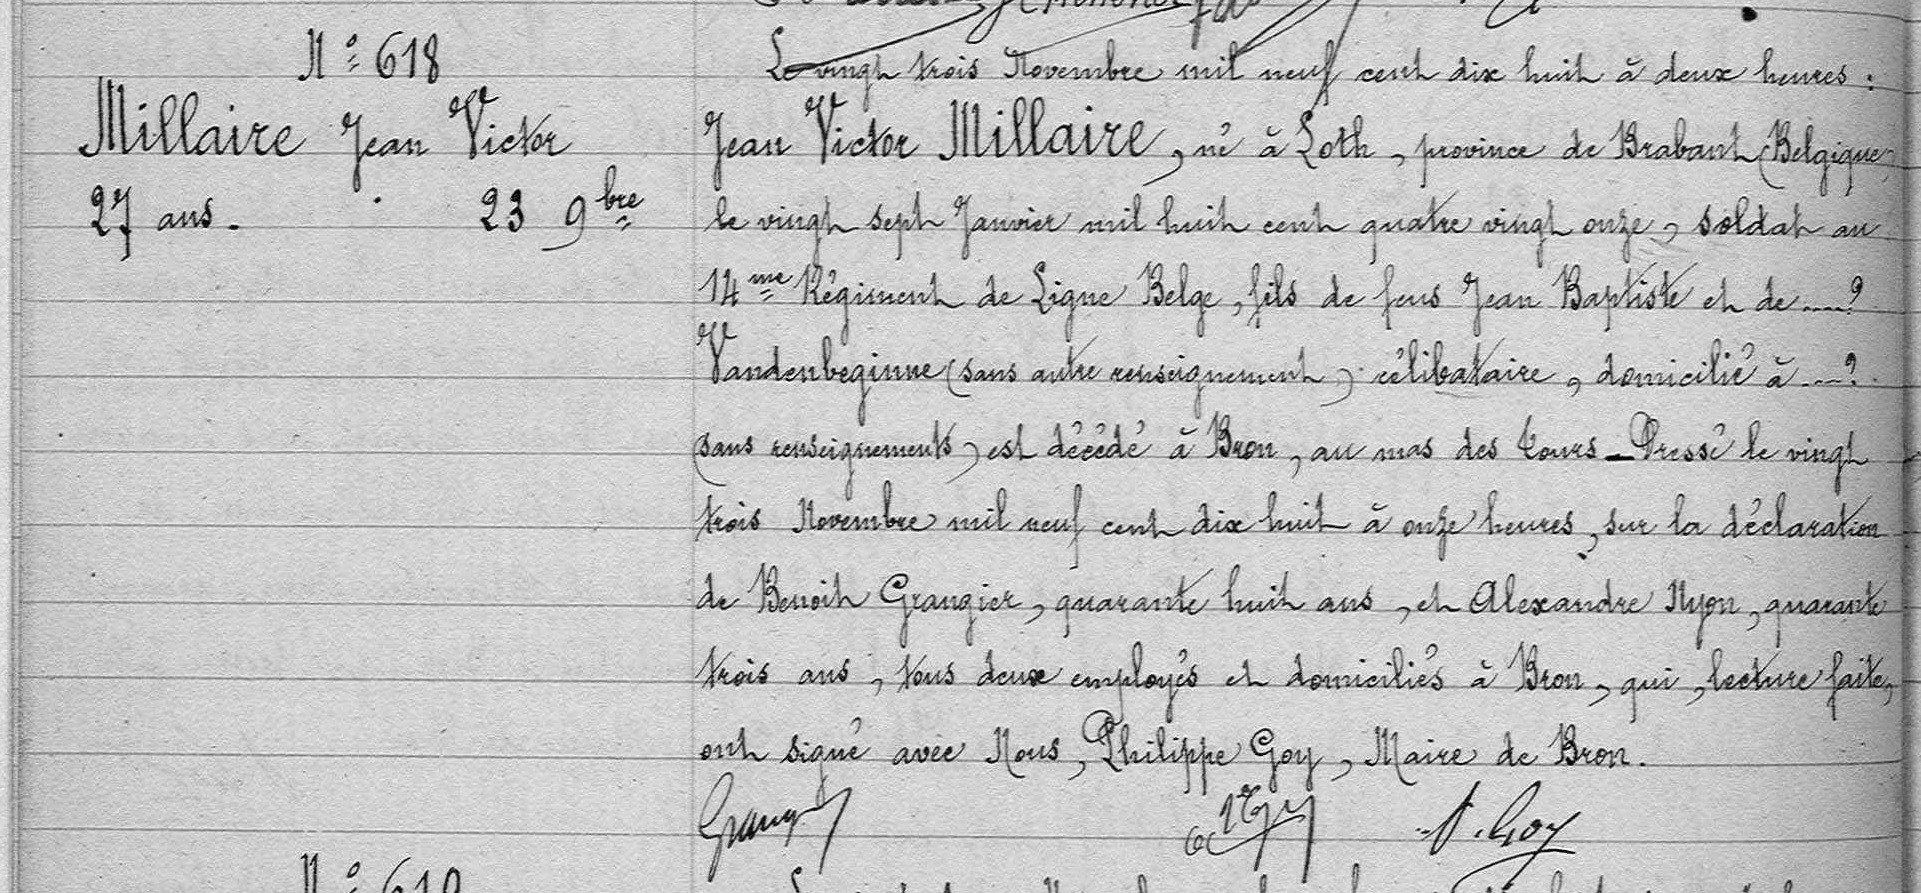 N° 618
Millaire Jean Victor
27 ans. 23 9bre
Le vingt trois Novembre mil neuf cent dix huit à deux heures :
Jean Victor Millaire, né à Loth, province de Brabant (Belgique)
le vingt sept Janvier mil huit cent quatre vingt onze, soldat au
14me Régiment de Ligne Belge, fils de feus Jean Baptiste et de ....?
Vandenbeginne (sans autre renseignement) célibataire, domicilié à ....?
(sans renseignements) est décédé à Bron, au mas des tours _ Dressé le vingt
trois Novembre mil neuf cent dix huit à onze heures, sur la déclaration
de Benoit Grangier, quarante huit ans, et Alexandre Nyon, quarante
trois ans, tous deux employés et domiciliés à Bron, qui, lecture faite,
ont signé avec Nous, Philippe Goy, Maire de Bron.
P. Goy
N° 619